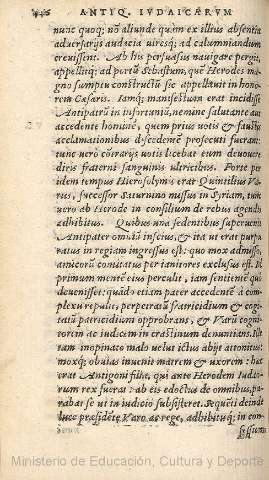 446 ANTIQ. IVDAICARVM
nunc quoq; nō aliunde quàm ex illius absentia
aduersarijs audacia uiresq; ad calumniandum
creuissent. Ab his persuasus nauigare pergit,
appellitq; ad portū Sebastum, quē Herodes ma-
gno sumptu constructū sic appellauit in hono-
rem Cæsaris. Iamq; manifestum erat incidisse
Antipatrū in infortuniū, nemine salutante aut
accedente hominē, quem prius uotis & faustis
acclamationibus discedentē prosecuti fuerant:
tunc uerò corā rijs uotis licebat eum deuouere
diris fraterni sanguinis ultricibus. Forte per
idem tempus Hierosolymis erat Quintilius Va-
rus, successor Saturnino missus in Syriam, tunc
uero ab Herode in consilium de rebus agendis
adhibitus. Quibus una sedentibus superuenit
Antipater omniū inscius, & ita ut erat purpu-
ratus in regiam ingressus est: quo mox admisso,
amicorū comitatus per ianitores exclusus est. Is
primum mente eius perculit, iam sentientis quò
deuenisset: quādo etiam pater accedentē à com-
plexu repulit, perpetratū fratricidium & cogi-
tatū patricidium opprobrans, & Varū cogni-
torem ac iudicem in crastinum denuntians. Illi
tam inopinato malo uelut ictus abijt attonitus:
moxq; obuias inuenit matrem & uxorem: hæc
erat Antigoni filia, qui ante Herodem Iudæo-
rum rex fuerat: ab eis edoctus de omnibus, pa-
rabat se ut in iudicio subsisteret. Sequēti deinde
luce præsidēte Varo ac rege, adhibitiq; in con-
sessum
Ministerio de Educación, Cultura y Deporte